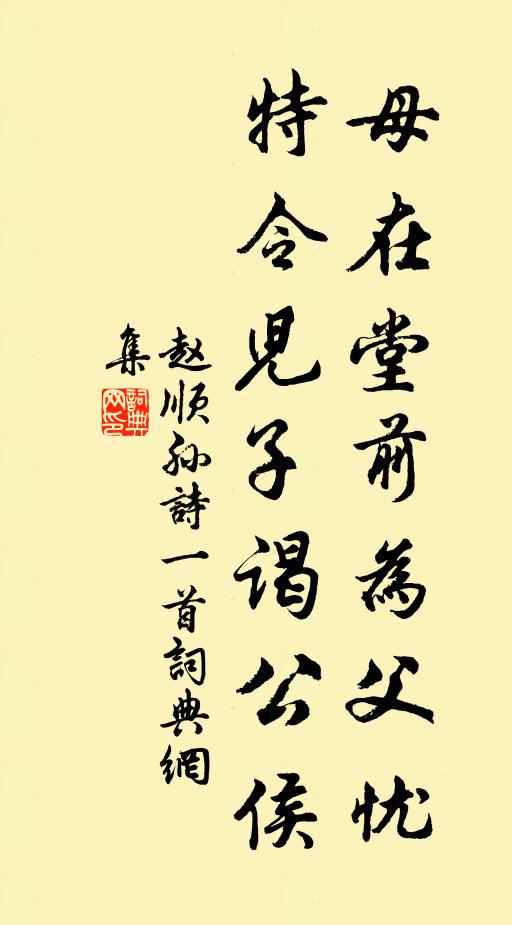 母在堂前為父忧
特令児子谒公侯
赵順孙詩一首詞典網
集
詞典网印